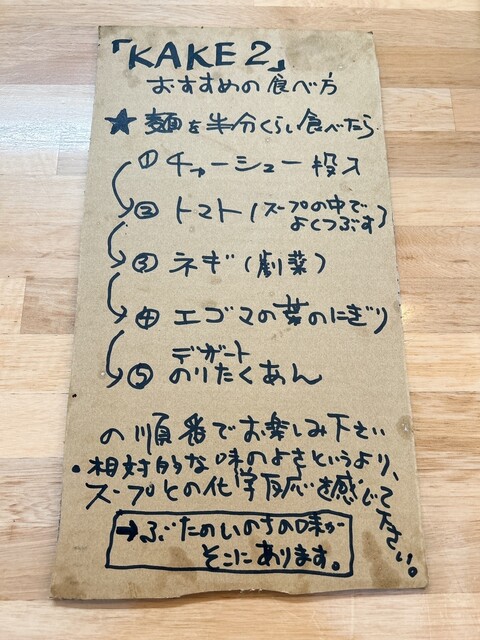 「KAKE2」
おすすめの食べ方
★麺を半分くらい食べたら
①チャーシュー投入
②トマト(スープの中で
よくつぶす)
③ネギ(劇薬)
④エゴマの葉のにぎり
デザート
⑤のりたくあん
の順番でお楽しみ下さい
・相対的な味のよさというより、
スープとの化学反応を感じて
下さい。
→ぶたのいのちの味が
そこにあります。